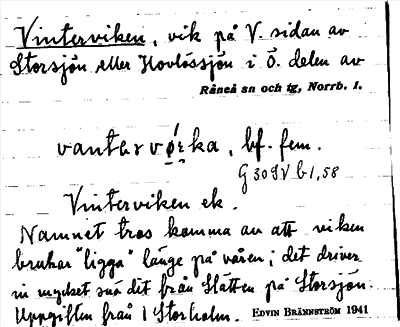 Vinterviken, vik på V. sidan av
Storsjön eller Hovlössjön i Ö. delen av
Råneå sn och tg, Norrb. l.
vantarvörka, bf. fem.
G 3098 V b 1, 58
Vinterviken ek.
Namnet tros komma av att viken
brukar "ligga" länge på våren; det driver
in mycket snö dit från Slätten på Storsjön.
Uppgiften från 1 Storholm. EDVIN BRÄNNSTRÖM 1941